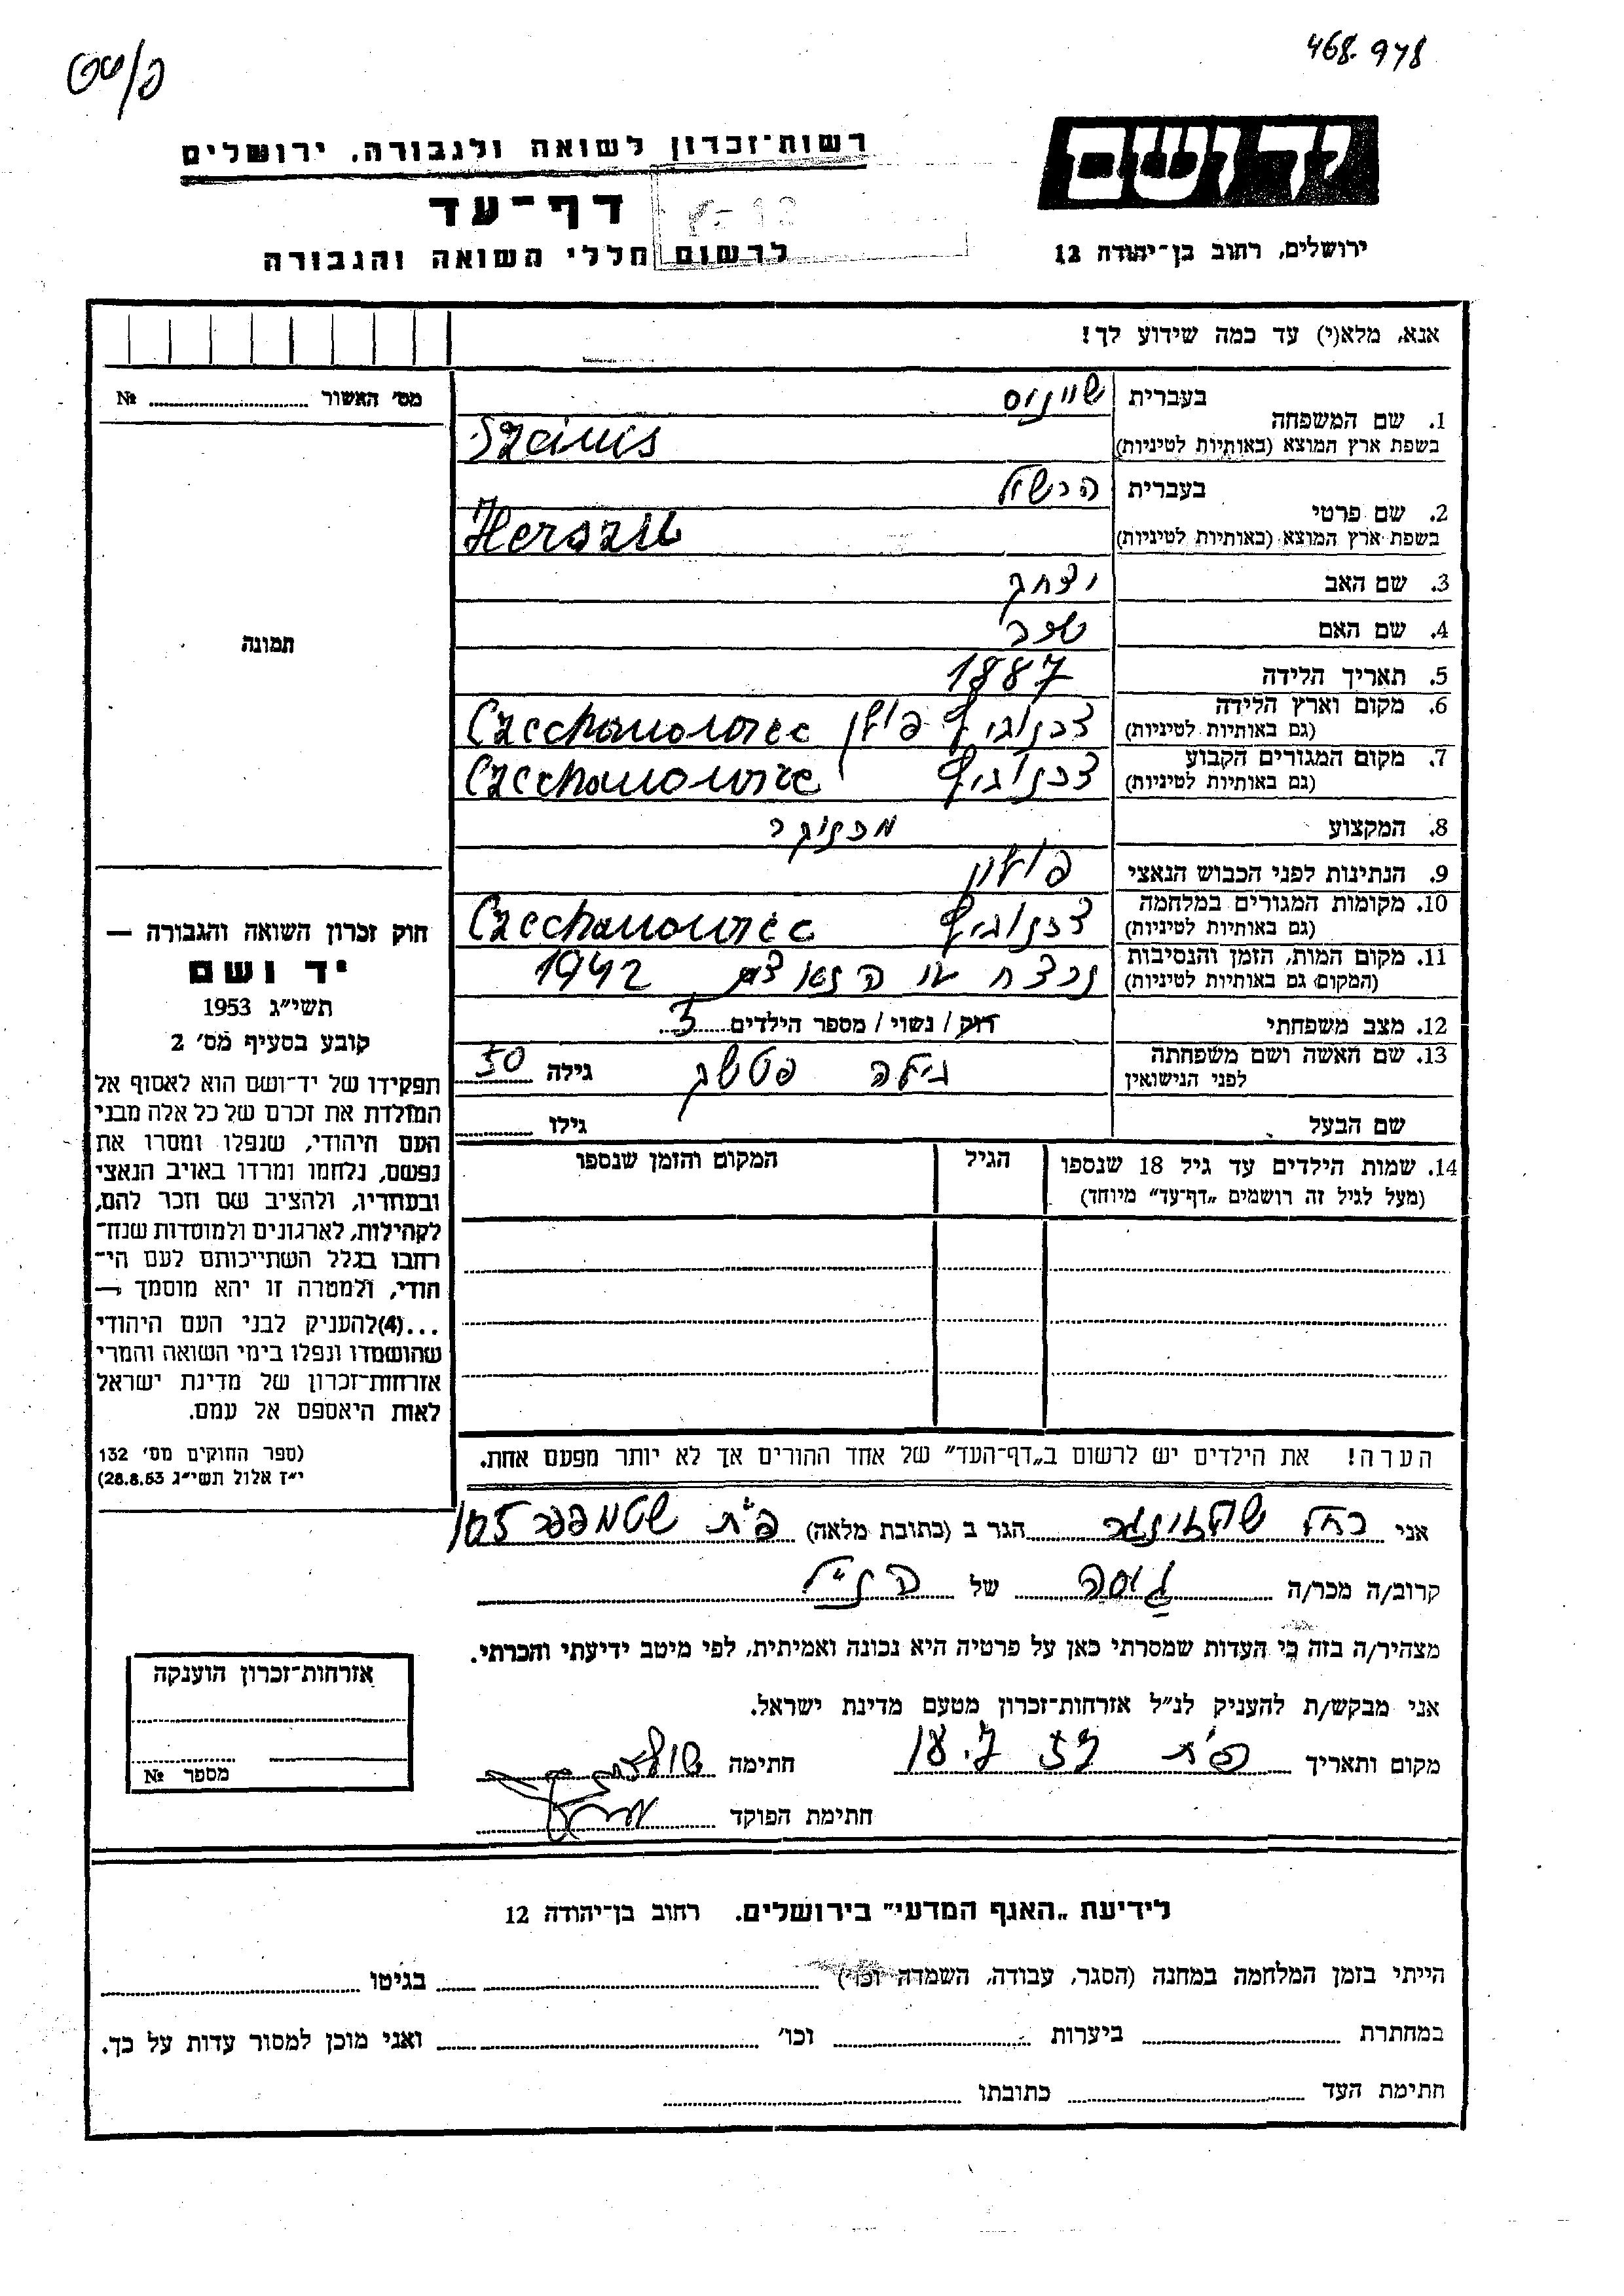 468.978
פ/שט
יד ושם
רשות־זכרון לשואה ולגבורה, ירושלים
דף־עד
לרשום חללי השואה והגבורה
ירושלים, רחוב בן־יהודה 12
אנא, מלא(י) עד כמה שידוע לך!
מס׳ האשור № 
1. שם המשפחה
בעברית שיינוס
בשפת ארץ המוצא (באותיות לטיניות) Szeinis
2. שם פרטי
בעברית הרשיל
בשפת ארץ המוצא (באותיות לטיניות) Herszil
3. שם האב יצחק
4. שם האם
5. תאריך הלידה 1887
6. מקום וארץ הלידה
(גם באותיות לטיניות) פולין Czechanowiec
7. מקום המגורים הקבוע
(גם באותיות לטיניות) Czechanowice
8. המקצוע
9. הנתינות לפני הכבוש הנאצי פולין
10. מקומות המגורים במלחמה
(גם באותיות לטיניות) Czechanowiec
11. מקום המות, הזמן והנסיבות
(המקום גם באותיות לטיניות) נרצח ע״י הנאצים 1942
12. מצב משפחתי רוק / נשוי / מספר הילדים 3
13. שם האשה ושם משפחתה
לפני הנישואין גילה 50
שם הבעל גילו
14. שמות הילדים עד גיל 18 שנספו
(מעל לגיל זה רושמים „דף־עד״ מיוחד)
הגיל
המקום והזמן שנספו
הערה! את הילדים יש לרשום ב„דף־העד״ של אחד ההורים אך לא יותר מפעם אחת.
תמונה
חוק זכרון השואה והגבורה —
יד ושם
תשי״ג 1953
קובע בסעיף מס׳ 2
תפקידו של יד־ושם הוא לאסוף אל
המולדת את זכרם של כל אלה מבני
העם היהודי, שנפלו ומסרו את
נפשם, נלחמו ומרדו באויב הנאצי
ובעוזריו, ולהציב שם וזכר להם,
לקהילות, לארגונים ולמוסדות שנח־
רבו בגלל השתייכותם לעם הי־
הודי, ולמטרה זו יהא מוסמך —
...(4)להעניק לבני העם היהודי
שהושמדו ונפלו בימי השואה והמרי
אזרחות־זכרון של מדינת ישראל
לאות היאספם אל עמם.
(ספר החוקים מס׳ 132
י״ז אלול תשי״ג 28.8.53)
אני רחל הגר ב (כתובת מלאה) פ״ת שטמפפר
קרוב/ה מכר/ה גיסה של הנ״ל
מצהיר/ה בזה כי העדות שמסרתי כאן על פרטיה היא נכונה ואמיתית, לפי מיטב ידיעתי והכרתי.
אני מבקש/ת להעניק לנ״ל אזרחות־זכרון מטעם מדינת ישראל.
מקום ותאריך פ״ת חתימה
חתימת הפוקד
אזרחות־זכרון הוענקה
מספר №
לידיעת „האגף המדעי״ בירושלים. רחוב בן־יהודה 12
הייתי בזמן המלחמה במחנה (הסגר, עבודה, השמדה וכו׳) בגיטו
במחתרת ביערות וכו׳ ואני מוכן למסור עדות על כך.
חתימת העד כתובתו